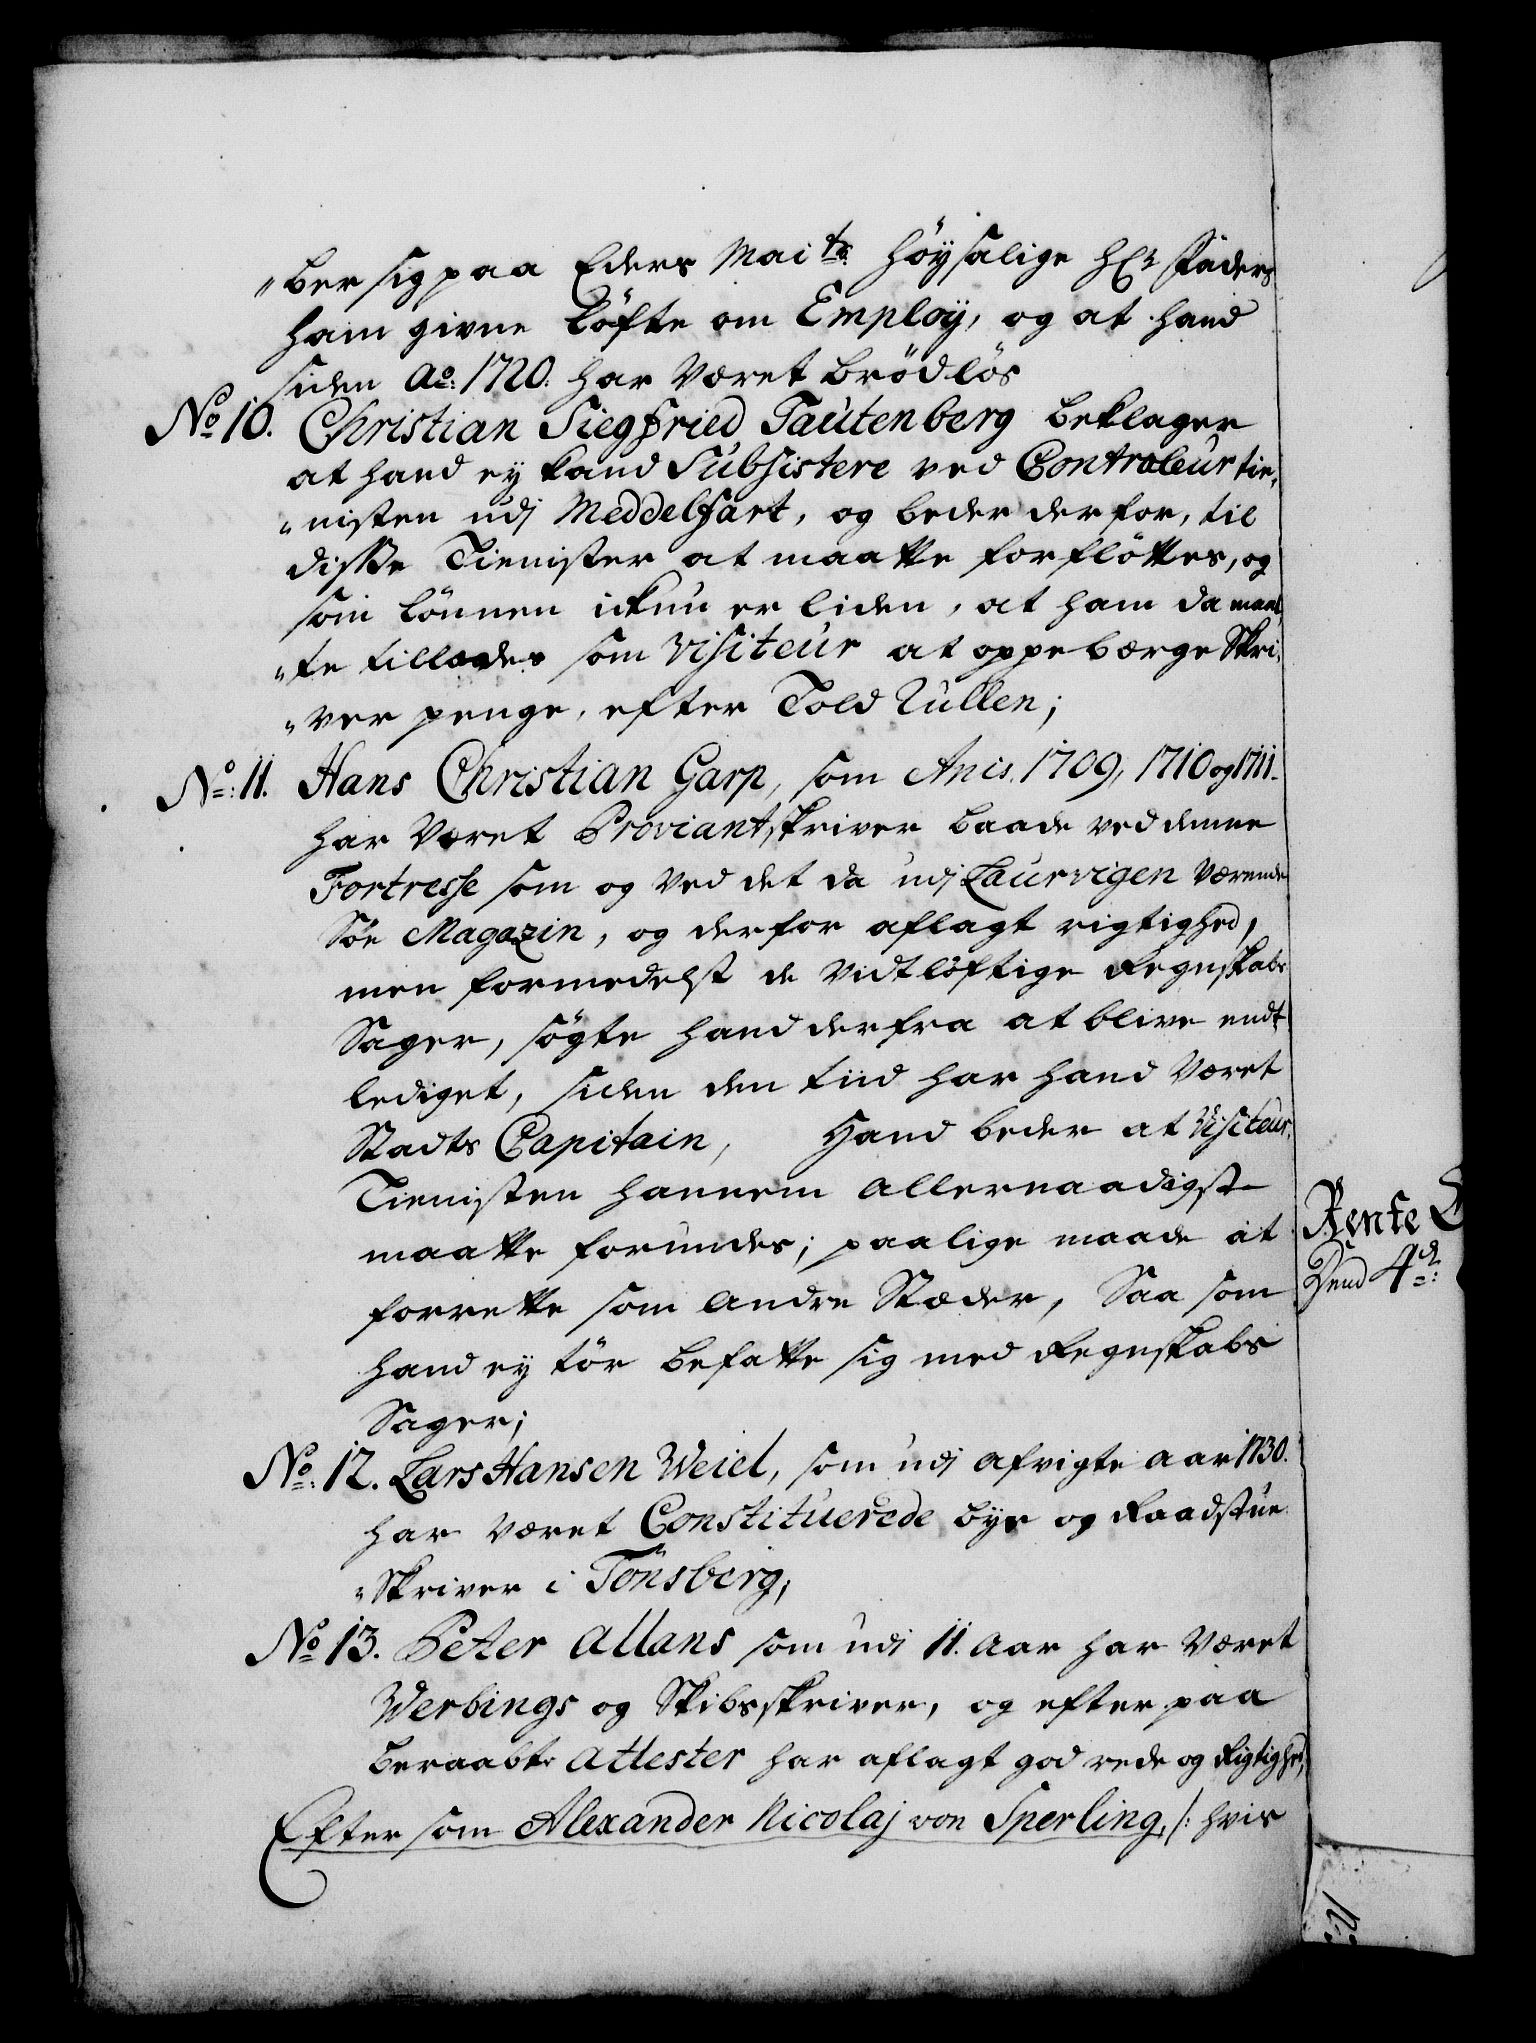 "ber sig paa Eders Maits. Höysalige Hr. Faders
ham givne Löfte om Employ, og at hand
siden Ao: 1720. har været brödlös
No 10. Christian Siegfried Tautenberg beklager
at hand ey kand Subsistere ved Controleur tie,
"nisten udj Meddelfart, og beder derfor, til
disse Tienister at maatte forflöttes, og
som Lönnen ickun er liden, at ham da maat,
"te tillades som Visiteur at oppebærge Skri,
"ver penge, efter Told Rullen;
No: 11. Hans Christian Garp, som Anis. 1709, 1710 og 1711.
har været Proviantskriver baade ved denne
Fortresse som og ved det da udj Laurvigen værende
Söe Magazin, og derfor aflagt rigtighed,
men formedelst de vidtlöftige Regnskabs
Sager, sögte hand derfra at blive endt
lediget, siden den tiid har hand været
Stadts Capitain, Hand beder at Visiteur
Tienisten hannem allernaadigst
maatte forundes; paa lige maade at
forrette som andre Stæder, Saa som
hand ey tör befatte sig med Regnskabs
Sager;
No: 12. Lars Hansen Weiel, som udj afvigte aar 1730.
har været Constituerede bye og Raadstue
"Skriver i Tönsberg;
No 13. Peter Allans som udj 11. Aar har været
Werbings og Skibsskriver, og efter paa
beraabte Attester har aflagt god rede og Rigtighed,
Efter som Alexander Nicolaj von Sperling, /: hvis
Rente
Dend 4de: